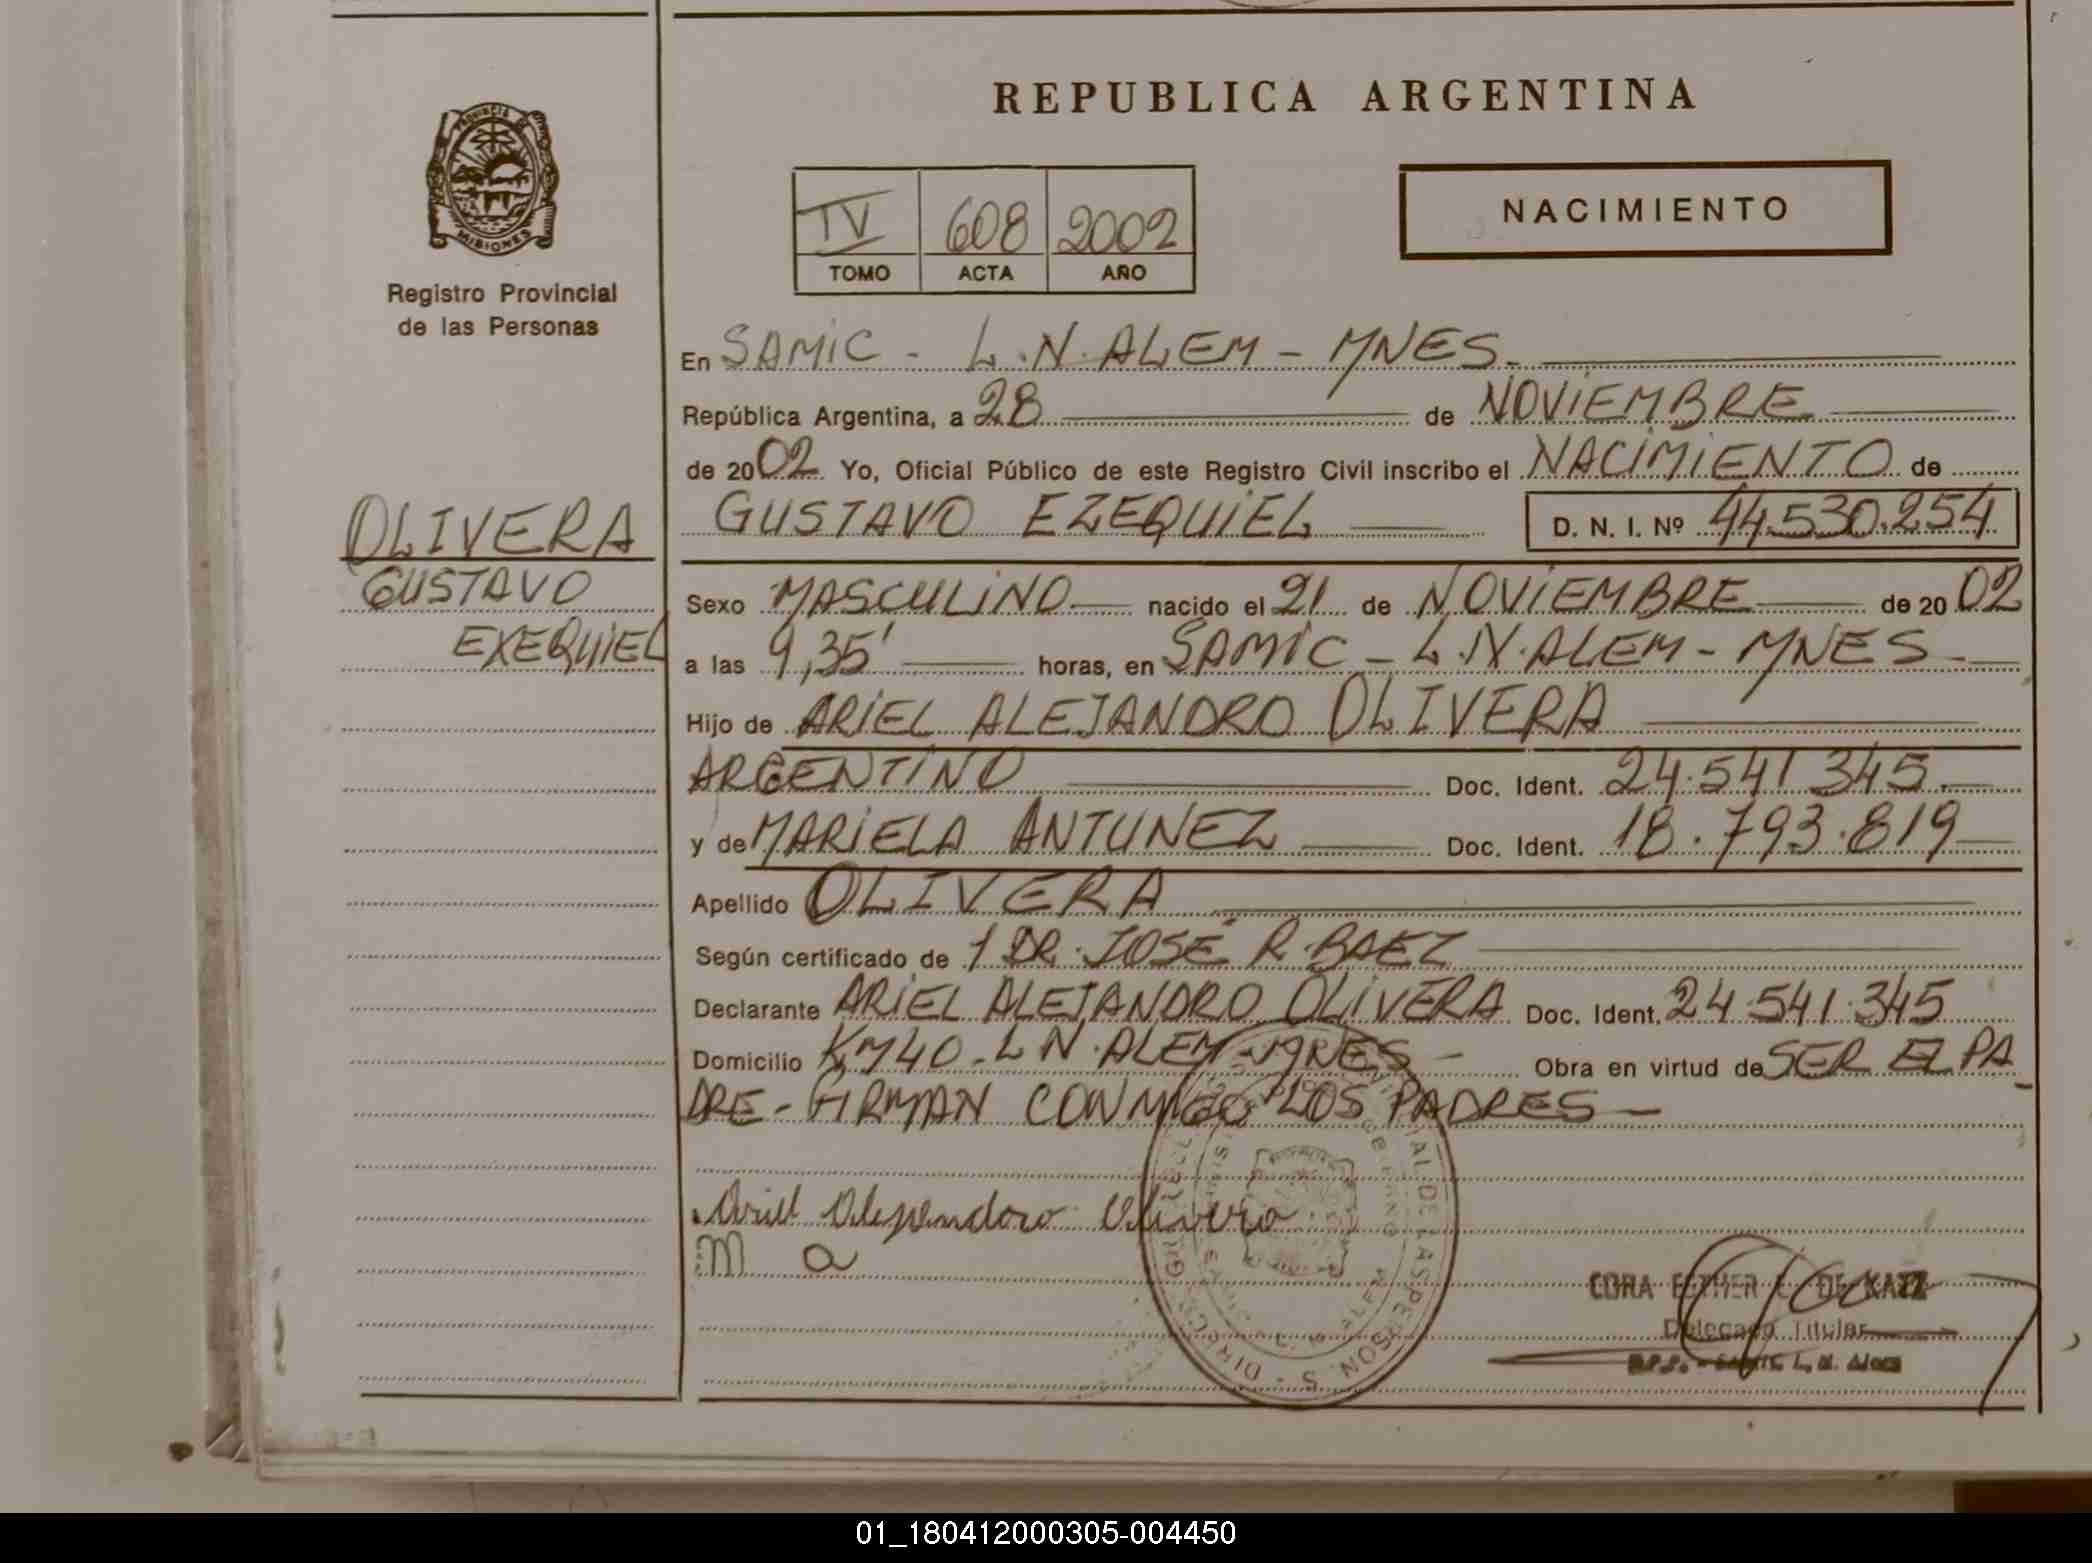 REPUBLICA ARGENTINA
PROVINCIA DE MISIONES
Registro Provincial
de las Personas
IV 608 2002
TOMO ACTA AÑO
NACIMIENTO
En SAMIC - L.N.ALEM - MNES.
República Argentina, a 28 de NOVIEMBRE
de 2002 Yo, Oficial Público de este Registro Civil inscribo el NACIMIENTO de
GUSTAVO EZEQUIEL D. N. I. Nº 44.530.254
OLIVERA
GUSTAVO
EXEQUIEL
Sexo MASCULINO nacido el 21 de NOVIEMBRE de 2002
a las 9,35' horas, en SAMIC - L.N.ALEM - MNES -
Hijo de ARIEL ALEJANDRO OLIVERA
ARGENTINO Doc. Ident. 24.541.345.-
y de MARIELA ANTUNEZ Doc. Ident. 18.793.819-
Apellido OLIVERA
Según certificado de 1 DR. JOSÉ R. BAEZ
Declarante ARIEL ALEJANDRO OLIVERA Doc. Ident. 24.541.345
Domicilio KM40 - L N. ALEM - MNES - Obra en virtud de SER EL PA
DRE - FIRMAN CONMIGO LOS PADRES -
Ariel Alejandro Olivera
m a
CORA ESTHER DE KATZ
Delegado Titular
L. N. Alem
01_180412000305-004450